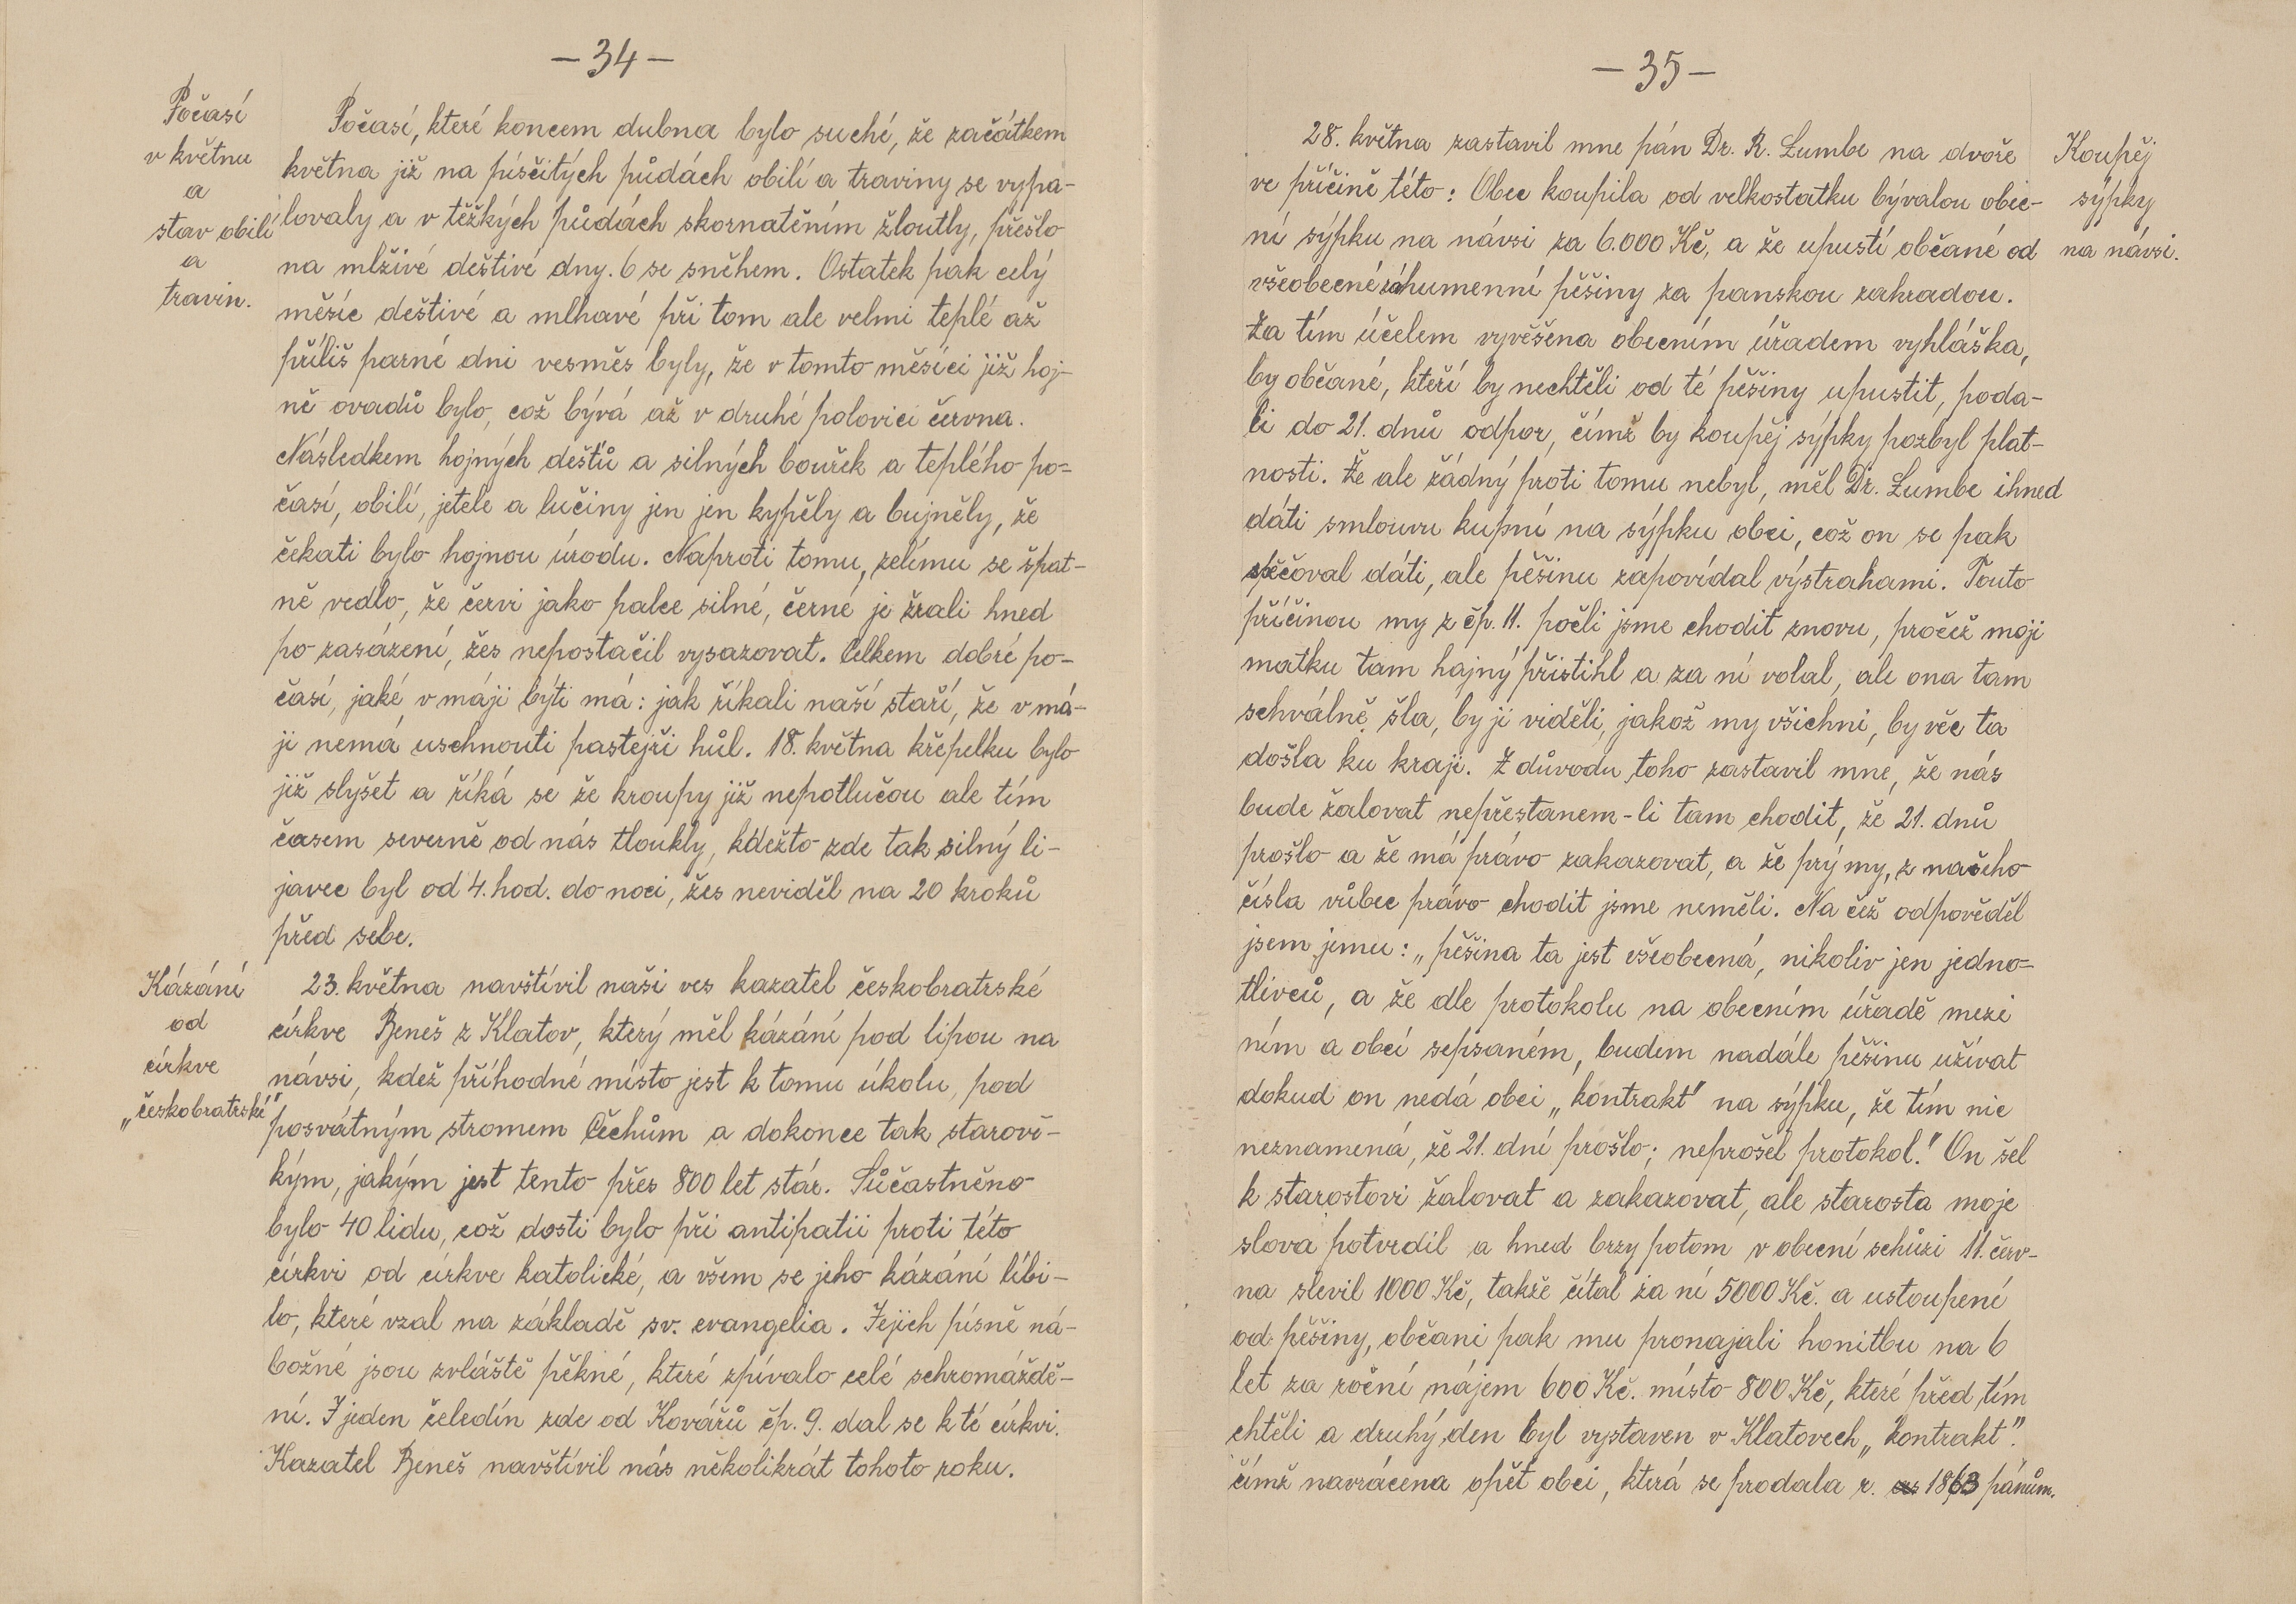 – 34 –
Počasí
v květnu
a
stav obilí
a
travin.
Počasí, které koncem dubna bylo suché, že začátkem
května již na písčitých půdách obilí a traviny se vypa-
lovaly a v těžkých půdách skornatěním žloutly, přešlo
na mlživé deštivé dny. 6 se sněhem. Ostatek pak celý
měsíc deštivé a mlhavé při tom ale velmi teplé až
příliš parné dni vesměs byly, že v tomto měsíci již hoj-
ně ovadů bylo, což bývá až v druhé polovici června.
Následkem hojných dešťů a silných bouřek a teplého po-
časí, obilí, jetele a lučiny jen jen kypěly a bujněly, že
čekati bylo hojnou úrodu. Naproti tomu, zelímu se špat-
ně vedlo, že červi jako palce silné, černé je žrali hned
po zasázení, žes nepostačil vysazovat. Celkem dobré po-
časí, jaké v máji býti má: jak říkali naší staří, že v má-
ji nemá uschnouti pastejři hůl. 18. května křepelku bylo
již slyšet a říká se že kroupy již nepotlučou ale tím
časem severně od nás tloukly, kdežto zde tak silný li-
javec byl od 4. hod. do noci, žes neviděl na 20 kroků
před sebe.
Kázání
od
církve
„českobratrské"
23. května navštívil naši ves kazatel českobratrské
církve Beneš z Klatov, který měl kázání pod lipou na
návsi, kdež příhodné místo jest k tomu úkolu, pod
posvátným stromem Čechům a dokonce tak starově-
kým, jakým jest tento přes 800 let stár. Sůčastněno
bylo 40 lidu, což dosti bylo při antipatii proti této
církvi od církve katolické, a všem se jeho kázání líbi-
lo, které vzal na základě sv. evangelia. Jejich písně ná-
božné jsou zvláště pěkné, které zpívalo celé schromáždě-
ní. I jeden čeledín zde od Kovářů čp. 9. dal se k té církvi.
Kazatel Beneš navštívil nás několikrát tohoto roku.
– 35 –
Koupěj
sýpky
na návsi.
28. května zastavil mne pán Dr. R. Lumbe na dvoře
ve příčině této: Obec koupila od velkostatku bývalou obec-
ní sýpku na návsi za 6.000 Kč, a že upustí občané od
všeobecné záhumenní pěšiny za panskou zahradou.
Za tím účelem vyvěšena obecním úřadem vyhláška,
by občané, kteří by nechtěli od té pěšiny upustit, poda-
li do 21. dnů odpor, čímž by koupěj sýpky pozbyl plat-
nosti. Že ale žádný proti tomu nebyl, měl Dr. Lumbe ihned
dáti smlouvu kupní na sýpku obci, což on se pak
spěčoval dáti, ale pěšinu zapovídal výstrahami. Touto
příčinou my z čp. 11. počli jsme chodit znovu, pročež moji
matku tam hajný přistihl a za ní volal, ale ona tam
schválně šla, by ji viděli, jakož my všichni, by věc ta
došla ku kraji. Z důvodu toho zastavil mne, že nás
bude žalovat nepřestanem-li tam chodit, že 21. dnů
prošlo a že má právo zakazovat, a že prý my, z našeho
čísla vůbec právo chodit jsme neměli. Na čež odpověděl
jsem jemu: „pěšina ta jest všeobecná, nikoliv jen jedno-
tlivců, a že dle protokolu na obecním úřadě mezi
ním a obcí sepsaném, budem nadále pěšinu užívat
dokud on nedá obci „kontrakt" na sýpku, že tím nic
neznamená, že 21. dní prošlo; neprošel protokol." On šel
k starostovi žalovat a zakazovat, ale starosta moje
slova potvrdil a hned brzy potom v obecní schůzi 11. červ-
na slevil 1000 Kč, takže čítal za ní 5000 Kč. a ustoupení
od pěšiny, občani pak mu pronajali honitbu na 6
let za roční nájem 600 Kč. místo 800 Kč, které před tím
chtěli a druhý den byl vystaven v Klatovech „kontrakt".
čímž navrácena opět obci, která se prodala r. 1863 pánům.